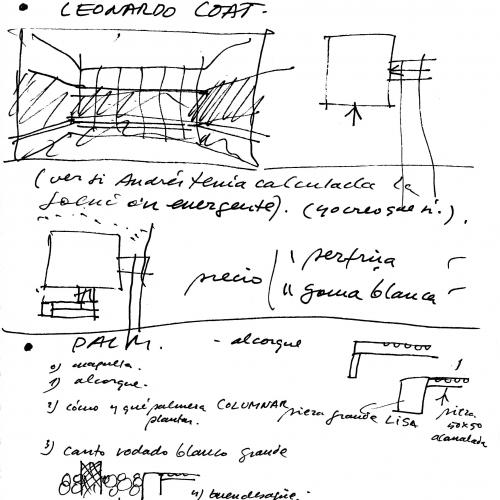 • LEONARDO COAT.
(ver si Andrés tenía calculada la
solución emergente). (yo creo que sí.).
precio
perfrisa
goma blanca
• PALM. - alcorque
0) maqueta.
1) alcorque.
2) cómo y qué palmera COLUMNAR
plantar.
pieza grande LISA
pieza
50x50
acanalada
3) canto rodado blanco grande
4) buen desagüe.